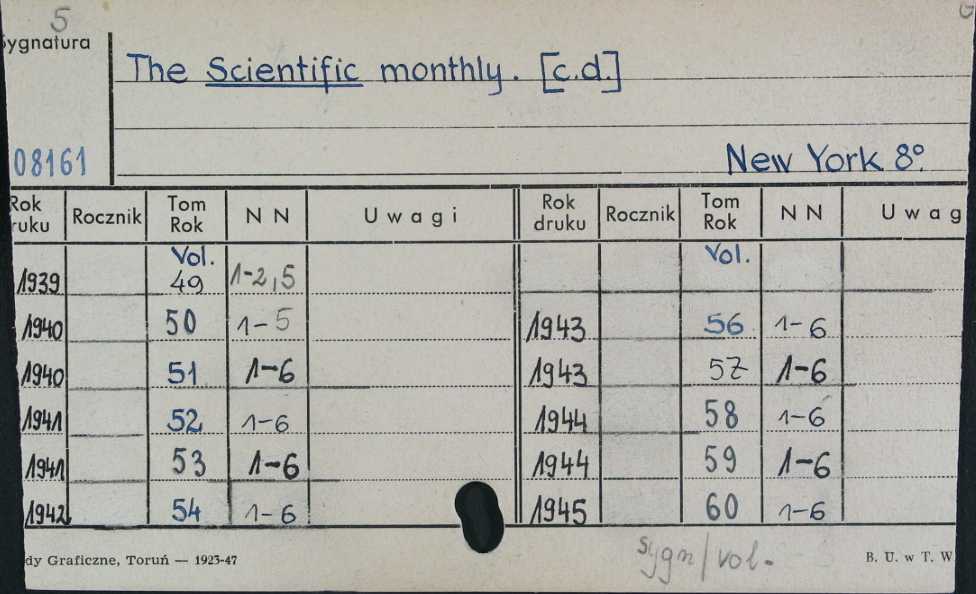 5
Sygnatura
The Scientific monthly. [c.d.]
08161
New York 8°.
Rok druku Rocznik Tom Rok N N Uwagi Rok druku Rocznik Tom Rok N N Uwag
Vol. Vol.
1939 49 1-2,5
1940 50 1-5 1943 56 1-6
1940 51 1-6 1943 57 1-6
1941 52 1-6 1944 58 1-6
1941 53 1-6 1944 59 1-6
1942 54 1-6 1945 60 1-6
dy Graficzne, Toruń — 1923-47
sygn/vol.
B. U. w T. W